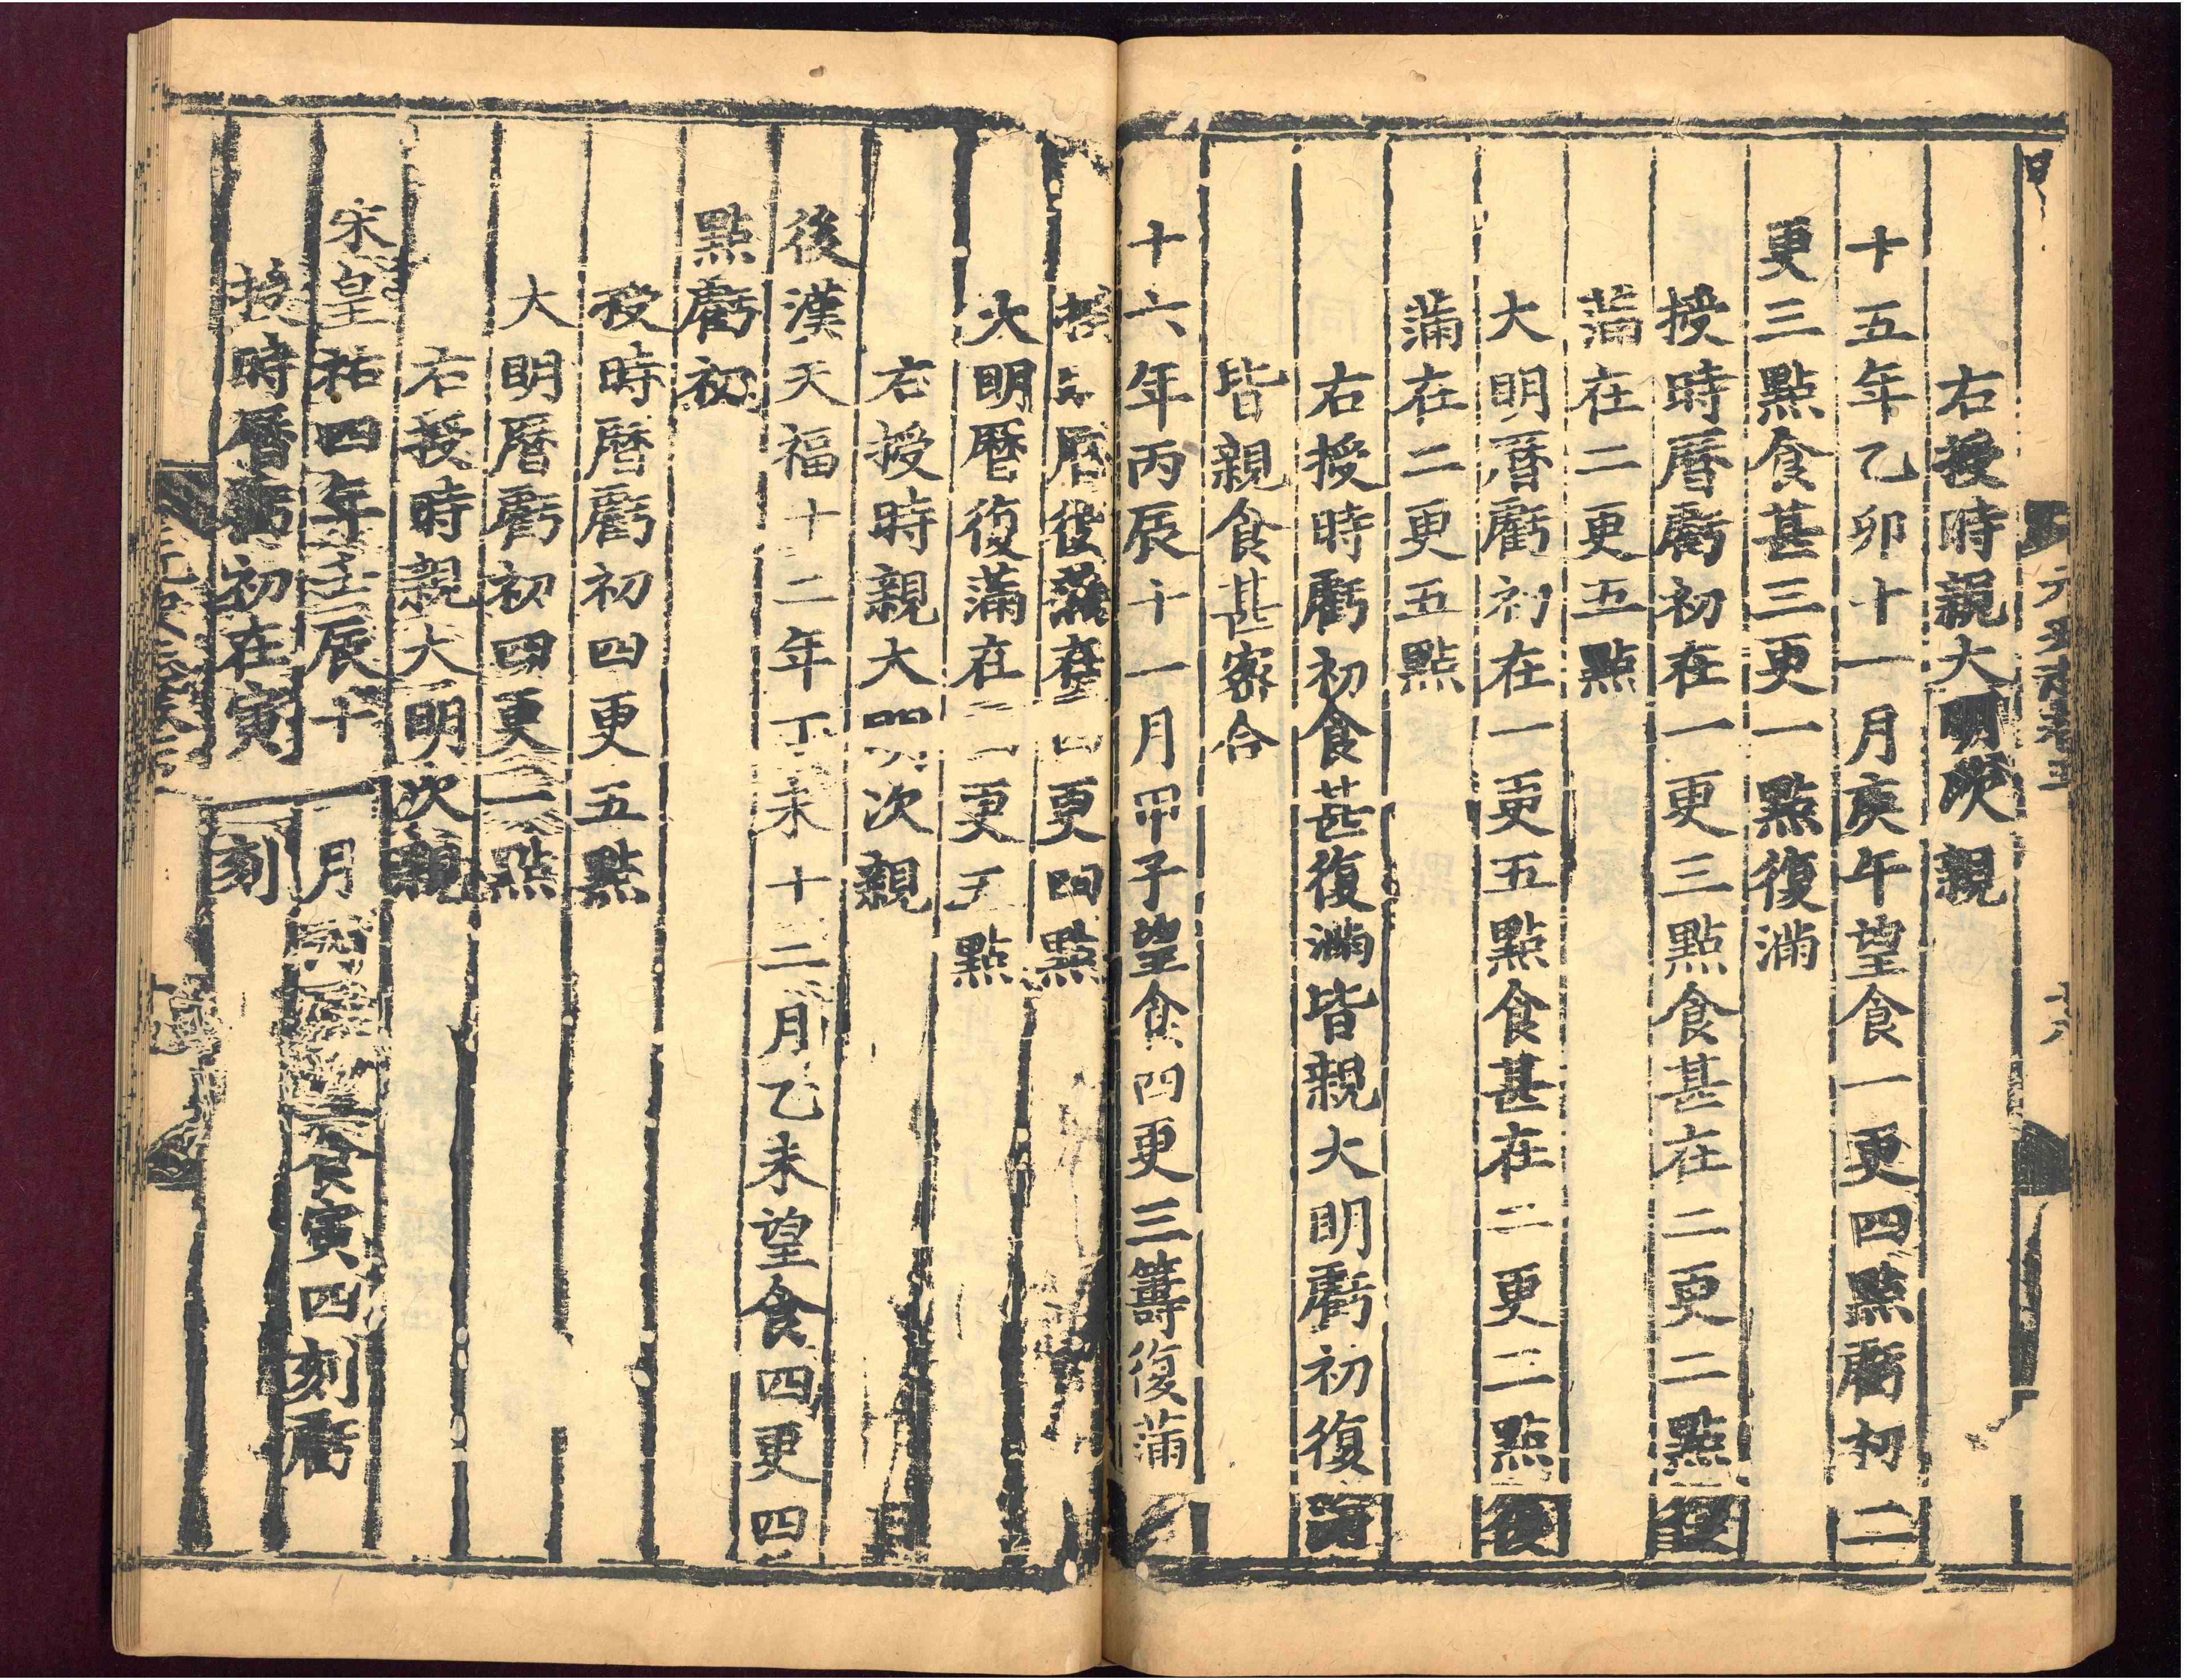 右授時親大明次親
十五年乙卯十一月庚午望食一更四點虧初二
更三點食甚三更一點復滿
授時曆虧初在一更三點食甚在二更二點復
滿在二更五點
大明曆虧初在一更五點食甚在二更二點復
滿在二更五點
右授時虧初食甚復滿皆親大明虧初復滿
皆親食甚密合
十六年丙辰十一月甲子望食四更三籌復滿
曆復滿在四更四點
大明曆復滿在二更五點
右授時親大明次親
後漢天福十二年丁未十二月乙未望食四更四
點虧初
授時曆虧初四更五點
大明曆虧初四更二點
右授時親大明次親
宋皇祐四年壬辰十一月食寅四刻虧
授時曆虧初在寅刻